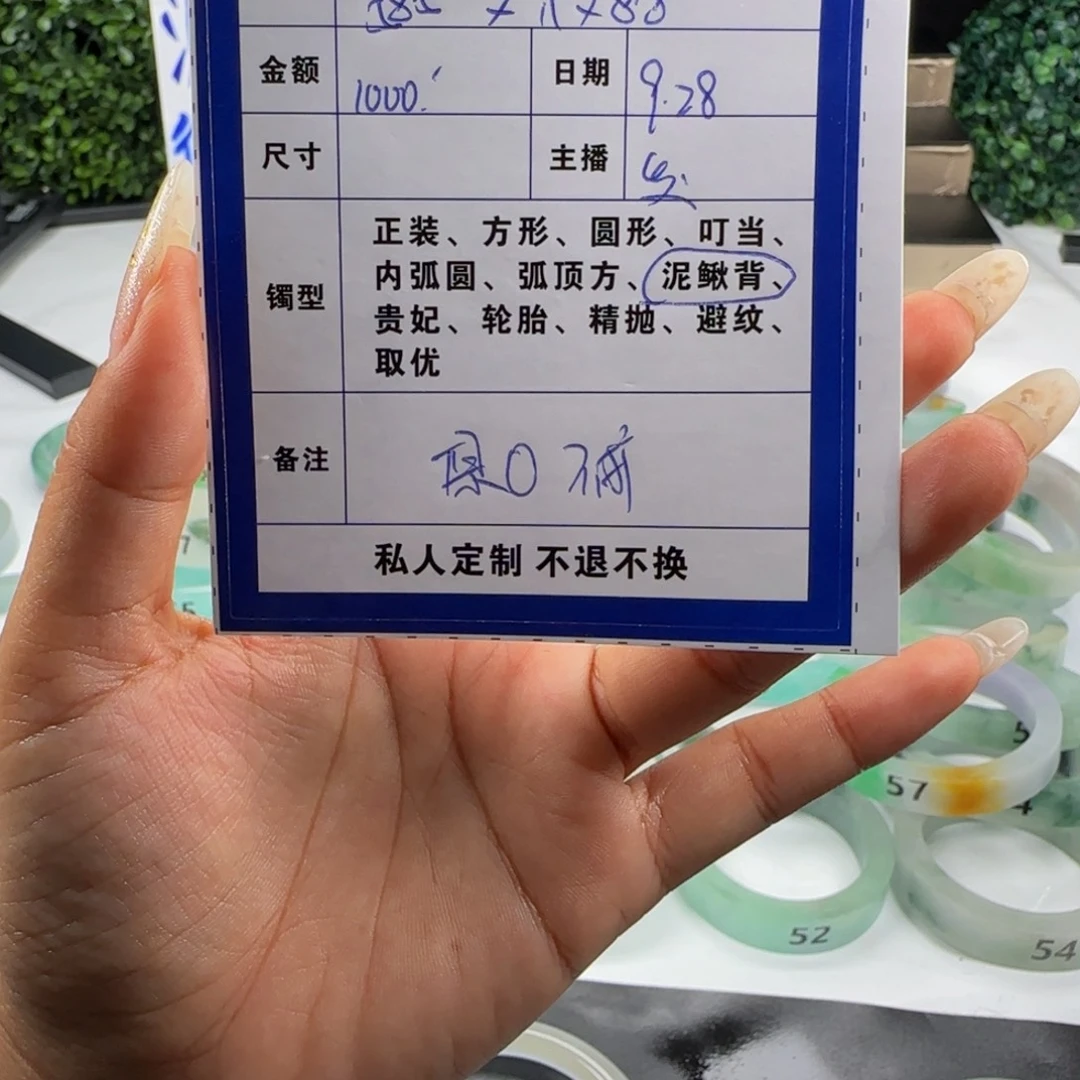 金额 1000.
日期 9.28
尺寸
主播
镯型
正装、方形、圆形、叮当、
内弧圆、弧顶方、泥鳅背、
贵妃、轮胎、精抛、避纹、
取优
备注
私人定制 不退不换
57
52
54